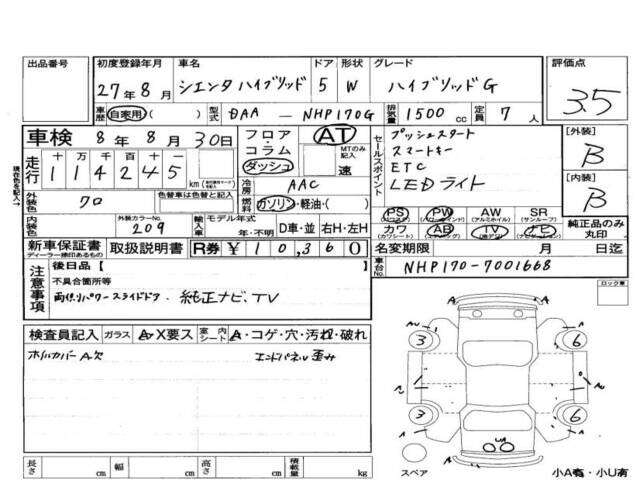 出品番号 初度登録年月 車名 ドア 形状 グレード 評価点
27年8月 シエンタ ハイブリッド 5 W ハイブリッドG 3.5
車歴 自家用( ) 型式 DAA - NHP170G 排気量 1500 cc 定員 7 人
車検 8年8月30日 フロア・コラム・ダッシュ AT MTのみ記入 速
セールスポイント プッシュスタート
スマートキー
ETC
LEDライト
[外装] B
[内装] B
走行 十 万 千 百 十 一
114245 km
冷房 AAC
現在色を記入→
外装色 クロ 色替車は色替と記入 ガソリン・軽油・( )
PS AW SR
(パワーウインドウ) (アルミホイル) (サンルーフ)
カワ AB TV ナビ
(カワシート) (エアバッグ) (テレビ) (ナビゲーション)
純正品のみ丸印
内装色 外装カラーNo. 209 輸入車 モデル年式 年・不明 D車・並 右H・左H
新車保証書 取扱説明書 R券 ¥10,360 名変期限 月 日迄
ディーラー捺印あるもの
車台No. NHP170-7001668
注意事項 後日品[ ]
不具合箇所等
両側パワースライドドア・純正ナビ、TV
ロック車
検査員記入 ガラス A・X要ス 室内シート A・コゲ・穴・汚れ・破れ
ホイルカバーA欠 エンドパネル歪み
A
AU 3 6 A
A
3 6 A
UA
スペア 小A有・小U有
長さ cm 幅 cm 高さ cm 積載量 kg